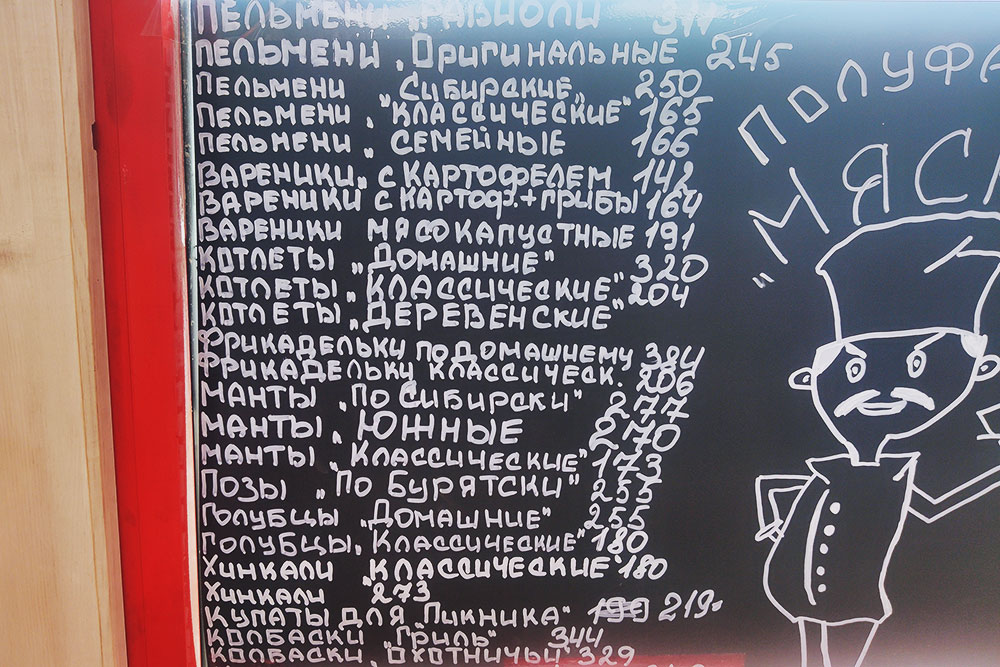 ПЕЛЬМЕНИ „РАВИОЛИ
ПЕЛЬМЕНИ „Оригинальные 245
ПЕЛЬМЕНИ „Сибирские„ 250
ПЕЛЬМЕНИ „Классические" 165
ПЕЛЬМЕНИ „СЕМЕЙНЫЕ 166
ВАРЕНИКИ„ С КАРТОФЕЛЕМ 142
ВАРЕНИКИ С КАРТОФ.+ГРИБЫ 164
ВАРЕНИКИ МЯСОКАПУСТНЫЕ 191
КОТЛЕТЫ „ДОМАШНИЕ" 320
КОТЛЕТЫ „КЛАССИЧЕСКИЕ" 204
КОТЛЕТЫ „ДЕРЕВЕНСКИЕ"
ФРИКАДЕЛЬКИ ПОДОМАШНЕМУ 384
ФРИКАДЕЛЬКИ КЛАССИЧЕСК. 206
МАНТЫ „ПО СИБИРСКИ" 277
МАНТЫ „ЮЖНЫЕ 270
МАНТЫ „КЛАССИЧЕСКИЕ" 173
ПОЗЫ „ПО БУРЯТСКИ" 255
ГОЛУБЦЫ „ДОМАШНИЕ" 255
ГОЛУБЦЫ„ КЛАССИЧЕСКИЕ" 180
ХИНКАЛИ „КЛАССИЧЕСКИЕ" 180
ХИНКАЛИ 273
КУПАТЫ ДЛЯ „ПИКНИКА" 199 219-
КОЛБАСКИ „ГРИЛЬ" 344
КОЛБАСКИ „ОХОТНИЧЬИ" 329
ПОЛУФА
„МЯСН